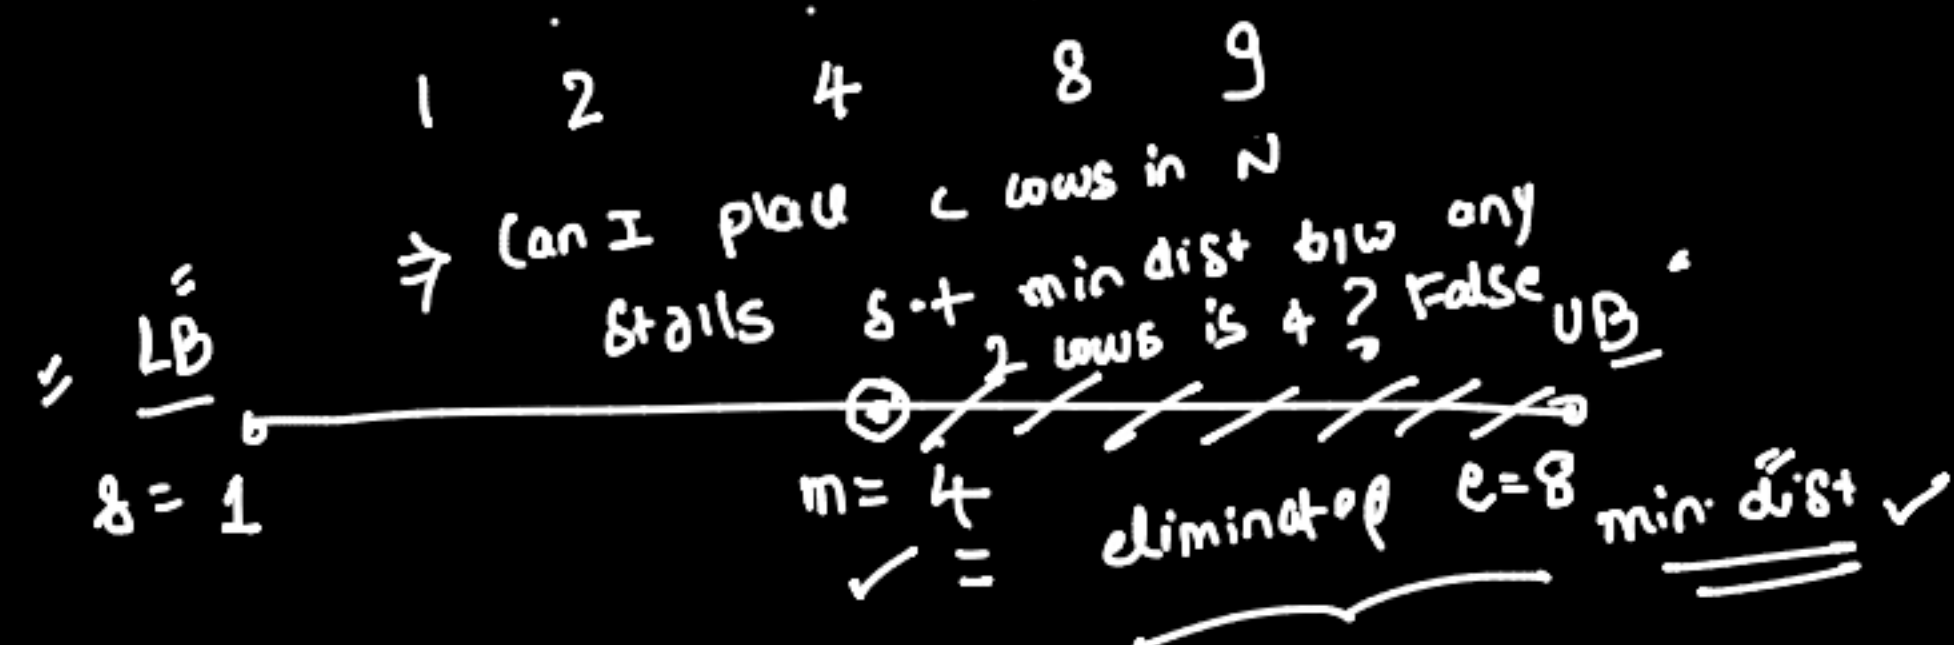 1 2 4 8 9
⇒ Can I place C cows in N
stalls s.t min dist b/w any
2 cows is 4 ? False
LB UB
s = 1 m = 4 e = 8
eliminated min dist